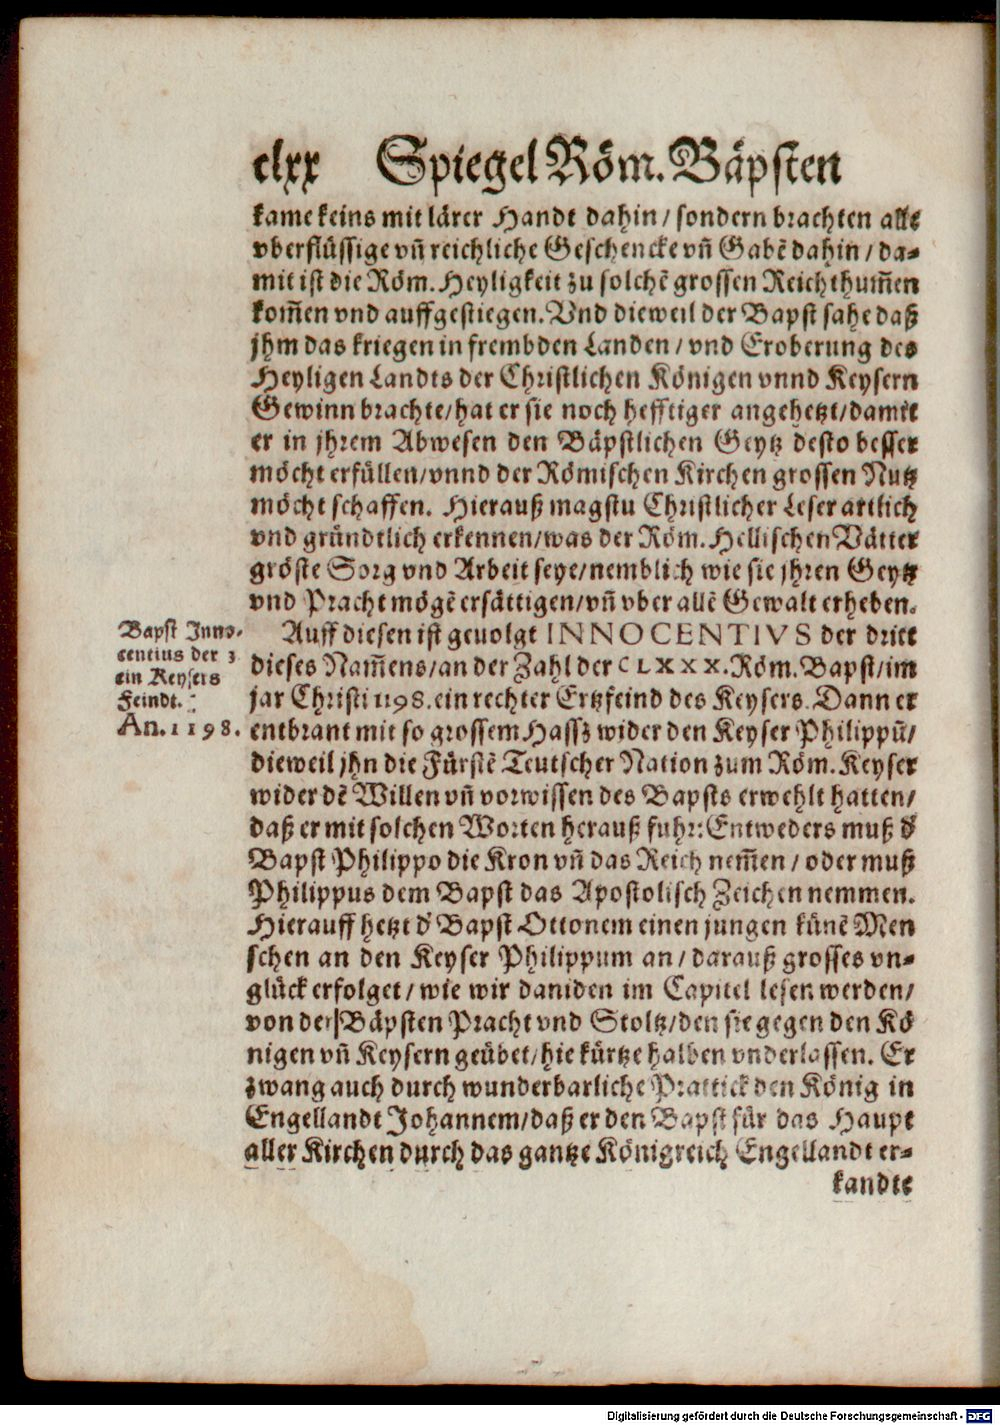 clxx Spiegel Röm. Bäpsten
kame keins mit lärer Handt dahin / sondern brachten alle
vberflüssige vn̄ reichliche Geschencke vn̄ Gabẽ dahin / da-
mit ist die Röm. Heyligkeit zu solchẽ grossen Reichthum̄en
kom̄en vnd auffgestiegen. Vnd dieweil der Bapst sahe daß
jhm das kriegen in frembden Landen / vnd Eroberung des
Heyligen Landts der Christlichen Königen vnnd Keysern
Gewinn brachte / hat er sie noch hefftiger angehetzt / damit
er in jhrem Abwesen den Bäpstlichen Geytz desto besser
möcht erfüllen / vnnd der Römischen Kirchen grossen Nutz
möcht schaffen. Hierauß magstu Christlicher Leser artlich
vnd gründtlich erkennen / was der Röm. Hellischen Vätter
gröste Sorg vnd Arbeit seye / nemblich wie sie jhren Geytz
vnd Pracht mögẽ ersättigen / vn̄ vber allẽ Gewalt erheben.
Bapst Inno-
centius der 3
ein Keysers
Feindt.
An. 1198.
Auff diesen ist geuolgt INNOCENTIVS der dritt
dieses Nam̄ens / an der Zahl der CLXXX. Röm. Bapst / im
jar Christi 1198. ein rechter Ertzfeind des Keysers. Dann er
entbrant mit so grossem Hassz wider den Keyser Philippū /
dieweil jhn die Fürstẽ Teutscher Nation zum Röm. Keyser
wider dẽ Willen vn̄ vorwissen des Bapsts erwehlt hatten /
daß er mit solchen Worten herauß fuhr: Entweders muß d'
Bapst Philippo die Kron vn̄ das Reich nem̄en / oder muß
Philippus dem Bapst das Apostolisch Zeichen nemmen.
Hierauff hetzt d' Bapst Ottonem einen jungen künẽ Men
schen an den Keyser Philippum an / darauß grosses vn-
glück erfolget / wie wir daniden im Capitel lesen werden /
von der Bäpsten Pracht vnd Stoltz / den sie gegen den Kö
nigen vn̄ Keysern geübet / hie kürtze halben vnderlassen. Er
zwang auch durch wunderbarliche Prattick den König in
Engellandt Johannem / daß er den Bapst für das Haupt
aller Kirchen durch das gantze Königreich Engellandt er-
kandte
Digitalisierung gefördert durch die Deutsche Forschungsgemeinschaft - DFG